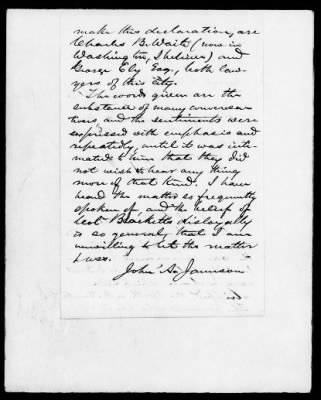 make this declaration, are
Charles B. Waite (now in
Washington, I believe) and
George Ely Esq., both law-
yers of this city.
The words given are the
substance of many conversa-
tions, and the sentiments were
expressed with emphasis and
repeatedly, until it was inti-
mated to him that they did
not wish to hear any thing
more of that kind. I have
heard the matter so frequently
spoken of and the belief of
Brackett's disloyalty
is so general, that I am
unwilling to let the matter
pass.
John A. Jameson